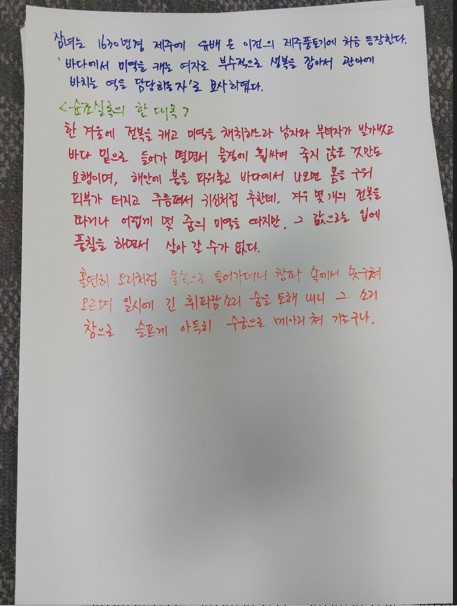 잠녀는 1630년경 제주에 유배 온 이건의 제주풍토기에 처음 등장한다.
'바다에서 미역을 캐는 여자로 부수적으로 생복을 잡아서 관아에
바치는 역을 담당하는 자'로 묘사하였다.
<순조실록의 한 대목>
한 겨울에 전복을 캐고 미역을 채취하느라 남자와 부녀자가 발가벗고
바다 밑으로 들어가 떨면서 물결에 휩싸여 죽지 않은 것만도
요행이며, 해안에 불을 피워놓고 바다에서 나오면 몸을 구워
피부가 터지고 주름져서 귀신처럼 추한데, 겨우 몇 개의 전복을
따거나 어렵게 몇 줌의 미역을 따지만, 그 값으로는 입에
풀칠을 하면서 살아 갈 수가 없다.
홀연히 오리처럼 물속으로 들어가더니 창파 속에서 솟구쳐
오르며 일시에 긴 휘파람소리 숨을 토해 내니 그 소리
참으로 슬프게 아득히 수궁으로 메아리쳐 가는구나.